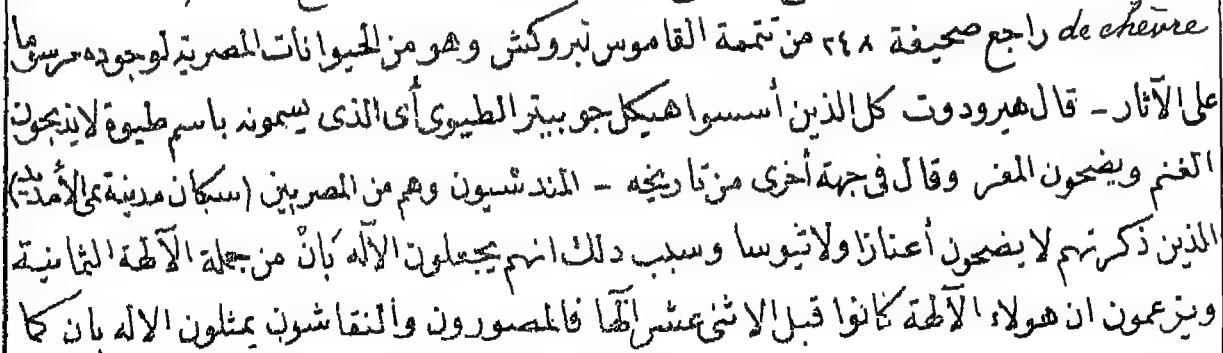 de chèvre راجع صحيفة ٢٤٨ من تتمة القاموس لبروكش وهو من الحيوانات المصرية لوجوده مرسوما
على الآثار - قال هيرودوت كل الذين أسسوا هيكل جوبيتر الطيبوى أى الذى يسمونه باسم طيبوة لايذبحون
الغنم ويضحون المعز وقال فى جهة أخرى من تاريخه - المندشيون وهم من المصريين (سكان مدينة تمى الأمديد)
الذين ذكرتهم لايضحون أعنازا ولاتيوسا وسبب دلك انهم يجعلون الآله بَانْ من جملة الآلهة الثمانية
ويزعمون ان هولاء الآلهة كانوا قبل الاثنى عشر الٰها فالمصورون والنقاشون يمثلون الاله بان كما